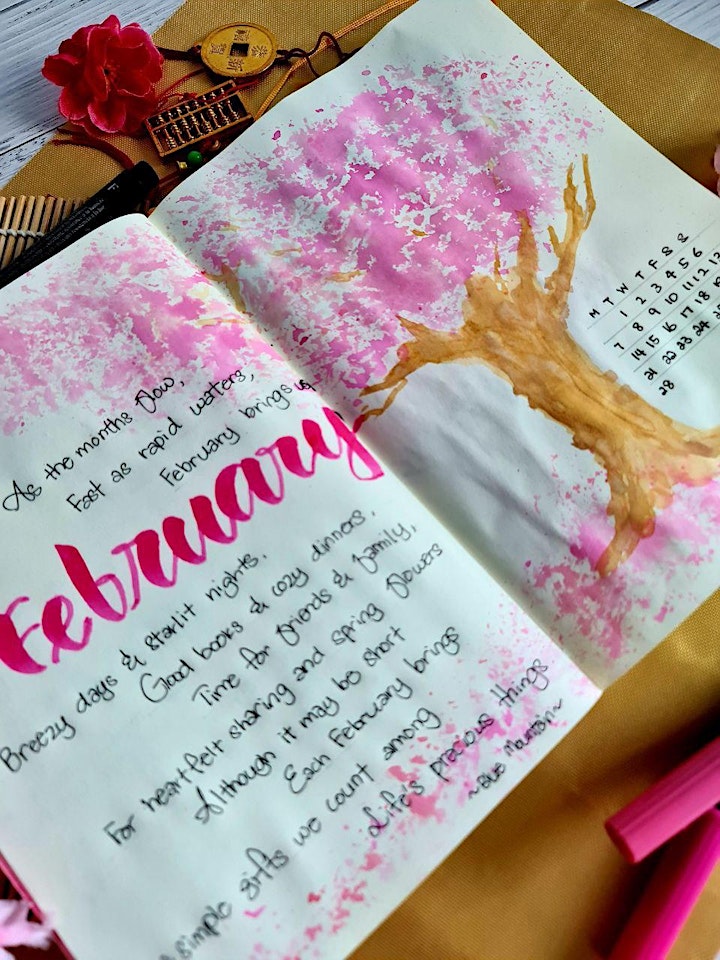 As the months flow,
Fast as rapid waters,
February brings us
February
Breezy days & starlit nights.
Good books & cozy dinners,
Time for friends & family,
For heartfelt sharing and spring flowers
Although it may be short
Each February brings
simple gifts we count among
Life's precious things
~Blue Mountain~
M T W T F S S
1 2 3 4 5 6
7 8 9 10 11 12 13
14 15 16 17 18
21 22 23 24
28